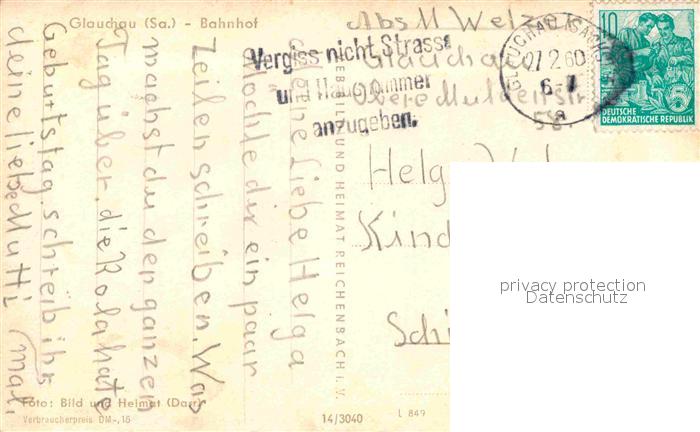 Glauchau (Sa.) - Bahnhof
Vergiss nicht Strasse
und Hausnummer
anzugeben.
GLAUCHAU (SACHS)
07.2.60
a
10
DEUTSCHE
DEMOKRATISCHE REPUBLIK
Abs M Welzel
Glauchau
Obere Muldenstr
58
Helga
Kind
Schi
meine liebe Helga
Möchte dir ein paar
Zeilen schreiben. Was
machst du den ganzen
Tag über. die Rola hate
Geburtstag. schreib ihr
deine liebe Mutti mal,
BILD UND HEIMAT REICHENBACH i. V.
Foto: Bild und Heimat (Darr)
Verbraucherpreis DM -,15
14/3040
L 849
privacy protection
Datenschutz